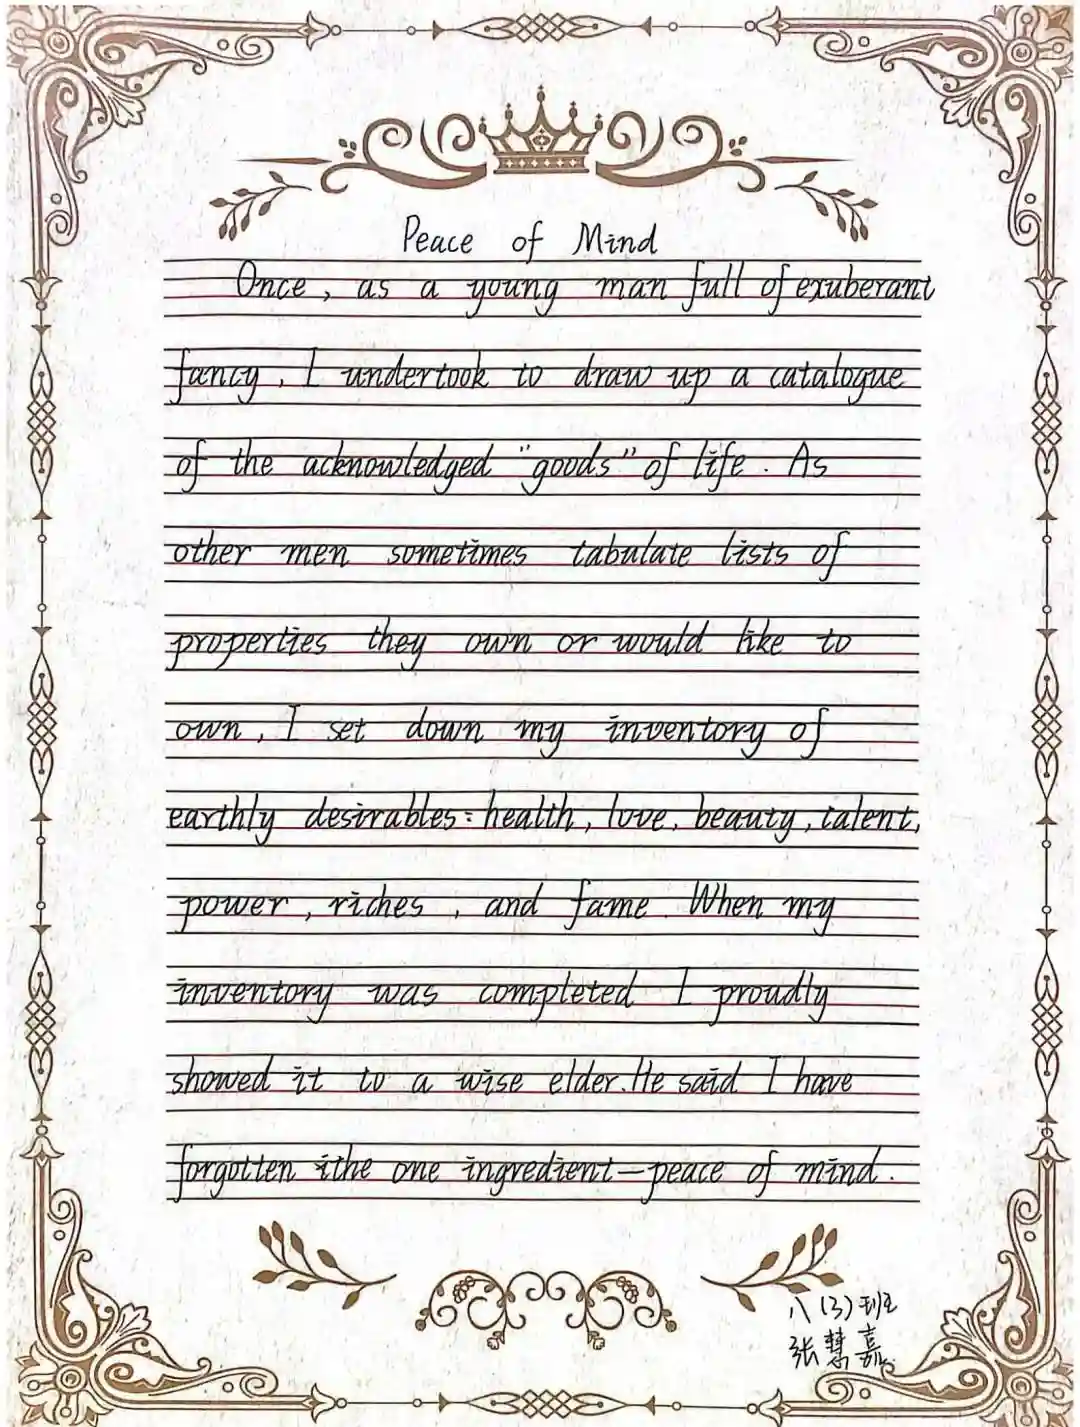 Peace of Mind
Once, as a young man full of exuberant
fancy, I undertook to draw up a catalogue
of the acknowledged "goods" of life. As
other men sometimes tabulate lists of
properties they own or would like to
own, I set down my inventory of
earthly desirables: health, love, beauty, talent,
power, riches, and fame. When my
inventory was completed I proudly
showed it to a wise elder. He said I have
forgotten the one ingredient—peace of mind.
八(3)班
张慧嘉